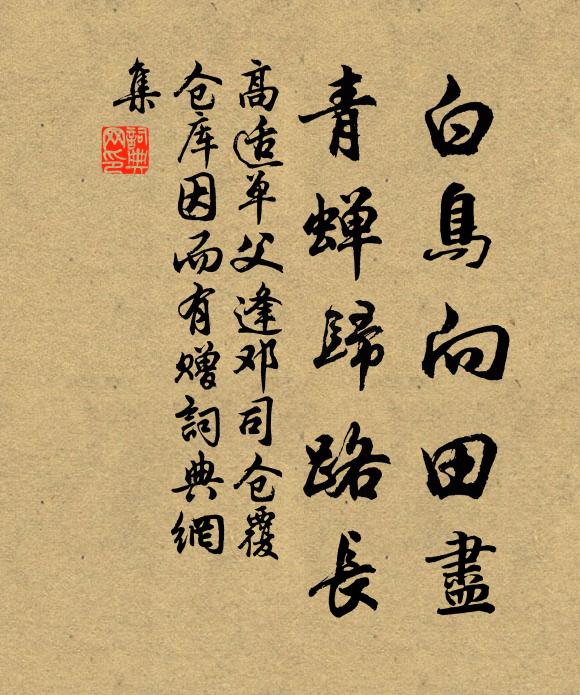 白鳥向田盡
青蝉歸路長
高适单父逢邓司仓覆
仓库因而有赠詞典網
集
詞典网印